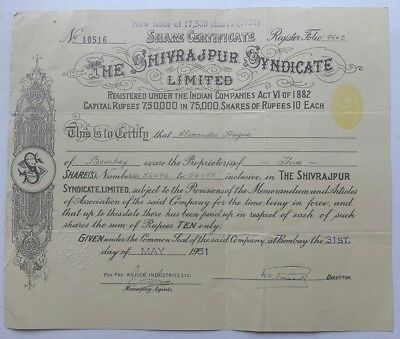 New issue of 17,500 shares (1951)
SHARE CERTIFICATE
No 10516
Register Folio 9602
THE SHIVRAJPUR SYNDICATE
LIMITED
REGISTERED UNDER THE INDIAN COMPANIES ACT VI OF 1882
CAPITAL RUPEES 7,50,000 IN 75,000 SHARES OF RUPEES 10 EACH
This is to Certify that Alexander
of Bombay is/are the Proprietor(s) of ~ Three ~
SHARE(S), Number(s) 56096 to 56098 inclusive, in THE SHIVRAJPUR
SYNDICATE, LIMITED, subject to the Provisions of the Memorandum and Articles
of Association of the said Company for the time being in force, and
that up to this date there has been paid up in respect of each of such
shares the sum of Rupees TEN only;
GIVEN under the Common Seal of the said Company, at Bombay the 31ST.
day of MAY 1951
PER PRO. KILLICK INDUSTRIES LTD.
Managing Agents.
DIRECTOR.